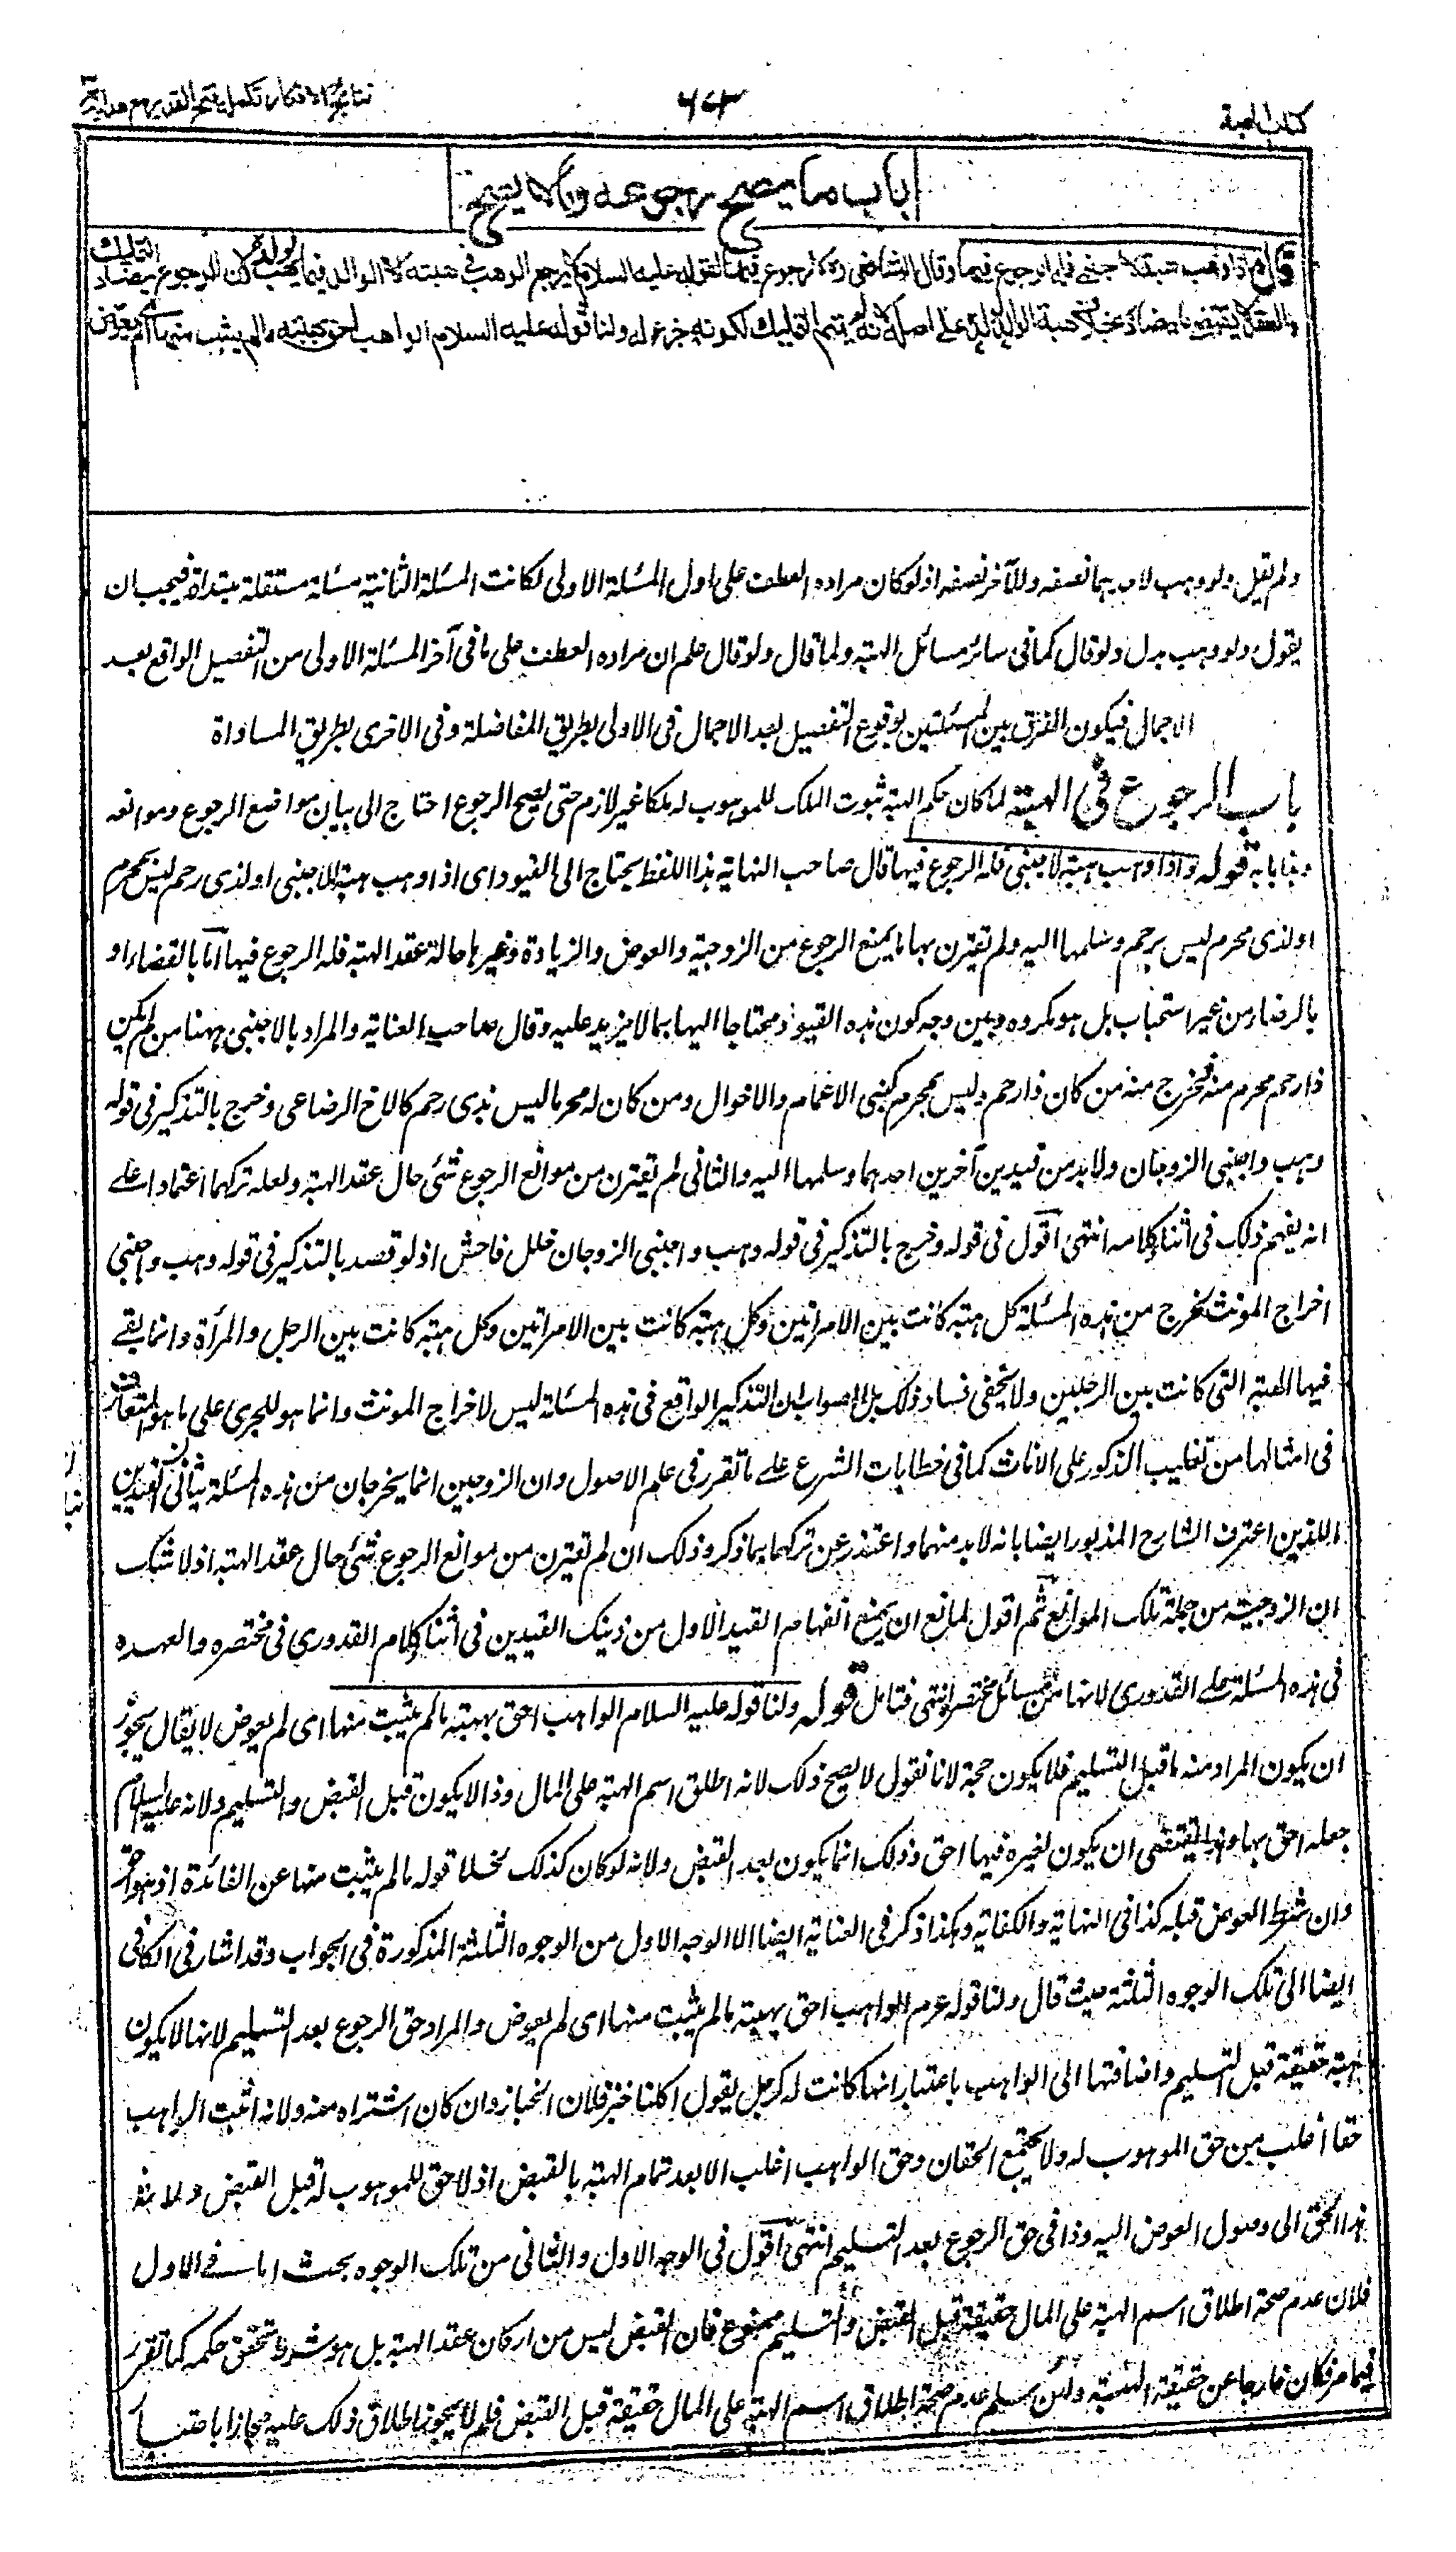 كتاب الهبة
نتائج الافكار تكملة فتح القدير مع هداية
باب ما يصح رجوعه وما لا يصح
قال واذا وهب هبة لاجنبي فله الرجوع فيها وقال الشافعي رح لا رجوع فيها لقوله عليه السلام لا يرجع الواهب في هبته الا الوالد فيما يهب لولده لان الرجوع يضاد التمليك
والعقد لا يقتضي ما يضاده بخلاف هبة الوالد لولده على اصله لانه لم يتم التمليك لكونه جزء له ولنا قوله عليه السلام الواهب احق بهبته ما لم يثب منها اي لم يعوض
ولم يقل ولو وهب لاحدهما نصفه وللآخر نصفه اذ لو كان مراده العطف على اول المسئلة الاولى لكانت المسئلة الثانية مسئلة مستقلة مبتدأة فيجب ان
يقول ولو وهب بدل ولو قال كما في سائر مسائل الهبة ولما قال ولو قال علم ان مراده العطف على ما في آخر المسئلة الاولى من التفصيل الواقع بعد
الاجمال فيكون الفرق بين المسئلتين بوقوع التفصيل بعد الاجمال في الاولى بطريق المفاضلة وفي الاخرى بطريق المساواة
باب الرجوع في الهبة لما كان حكم الهبة ثبوت الملك للموهوب له ملكا غير لازم حتى يصح الرجوع احتاج الى بيان مواضع الرجوع وموانعه
وهذا بابه قوله واذا وهب هبة لاجنبي فله الرجوع فيها قال صاحب النهاية هذا اللفظ يحتاج الى القيود اي اذا وهب هبة لاجنبي او لذي رحم ليس بمحرم
او لذي محرم ليس برحم وسلمها اليه ولم تقترن بها ما يمنع الرجوع من الزوجية والعوض والزيادة وغيرها حالة عقد الهبة فله الرجوع فيها اما بالقضاء او
بالرضاء من غير استحباب بل هو مكروه وبين وجه كون هذه القيود محتاجا اليها بما لا مزيد عليه وقال صاحب العناية والمراد بالاجنبي ههنا من لم يكن
ذا رحم محرم منه فخرج منه من كان ذا رحم وليس بمحرم كبني الاعمام والاخوال ومن كان له محرما ليس بذي رحم كالاخ الرضاعي وخرج بالتذكير في قوله
وهب واجنبي الزوجان ولا بد من قيدين آخرين احدهما وسلمها اليه والثاني لم تقترن من موانع الرجوع شئ حال عقد الهبة ولعله تركهما اعتمادا على
انه يفهم ذلك في اثناء كلامه انتهى اقول في قوله وخرج بالتذكير في قوله وهب واجنبي الزوجان خلل فاحش اذ لو قصد بالتذكير في قوله وهب واجنبي
اخراج المونث لخرج من هذه المسئلة كل هبة كانت بين الامرأتين وكل هبة كانت بين الامراتين وكل هبة كانت بين الرجل والمرأة وانما بقي
فيها الهبة التي كانت بين الرجلين ولا يخفى فساد ذلك بل الصواب ان التذكير الواقع في هذه المسئلة ليس لاخراج المونث وانما هو للجري على ما هو المتعارف
في امثالها من تغليب الذكور على الاناث كما في خطابات الشرع على ما تقرر في علم الاصول وان الزوجين انما يخرجان من هذه المسئلة بثاني القيدين
اللذين اعترف الشارح المذبور ايضا بانه لا بد منهما واعتذر عن تركهما بما ذكر وذلك ان لم تقترن من موانع الرجوع شئ حال عقد الهبة اذ لا شك
ان الزوجية من جملة تلك الموانع ثم اقول لمانع ان يمنع انفهام القيد الاول من ذينك القيدين في اثناء كلام القدوري في مختصره والعهدة
في هذه المسئلة على القدوري لانها من مسائل مختصره انتهى فتامل قوله ولنا قوله عليه السلام الواهب احق بهبته ما لم يثبت منها اى لم يعوض لا يقال يجوز
ان يكون المراد منه ما قبل التسليم فلا يكون حجة لانا نقول لا يصح ذلك لانه اطلق اسم الهبة على المال وذا لا يكون قبل القبض والتسليم ولانه عليه السلام
جعله احق بها وهذا يقتضي ان يكون لغيره فيها احق وذلك انما يكون بعد القبض ولانه لو كان كذلك لخلا قوله ما لم يثبت منها عن الفائدة اذ هو احق
وان شرط العوض قبله كذا في النهاية والكفاية وهكذا ذكر في العناية ايضا الا الوجه الاول من الوجوه الثلثة المذكورة في الجواب وقد اشار في الكافي
ايضا الى تلك الوجوه الثلثة حيث قال ولنا قوله عم الواهب احق بهبته ما لم يثبت منها اى لم يعوض والمراد حق الرجوع بعد التسليم لانها لا يكون
هبة حقيقة قبل التسليم واضافتها الى الواهب باعتبار انها كانت له كرجل يقول اكلنا خبز فلان الخباز وان كان اشتراه منه ولانه اثبت الواهب
حقا اغلب من حق الموهوب له ولا يجتمع الحقان وحق الواهب اغلب الا بعد تمام الهبة بالقبض اذ لا حق للموهوب له قبل القبض ولانه
هذا الحق الى وصول العوض اليه وذا في حق الرجوع بعد التسليم انتهى اقول في الوجه الاول والثاني من تلك الوجوه بحث اما في الاول
فلان عدم صحة اطلاق اسم الهبة على المال حقيقة قبل القبض والتسليم ممنوع فان القبض ليس من اركان عقد الهبة بل هو شرط تحقق حكمه كما تقرر
فيما مر فكان خارجا عن حقيقة الهبة ولئن سلم عدم صحة اطلاق اسم الهبة على المال حقيقة قبل القبض فلم لا يجوز اطلاق ذلك عليه مجازا باعتبار